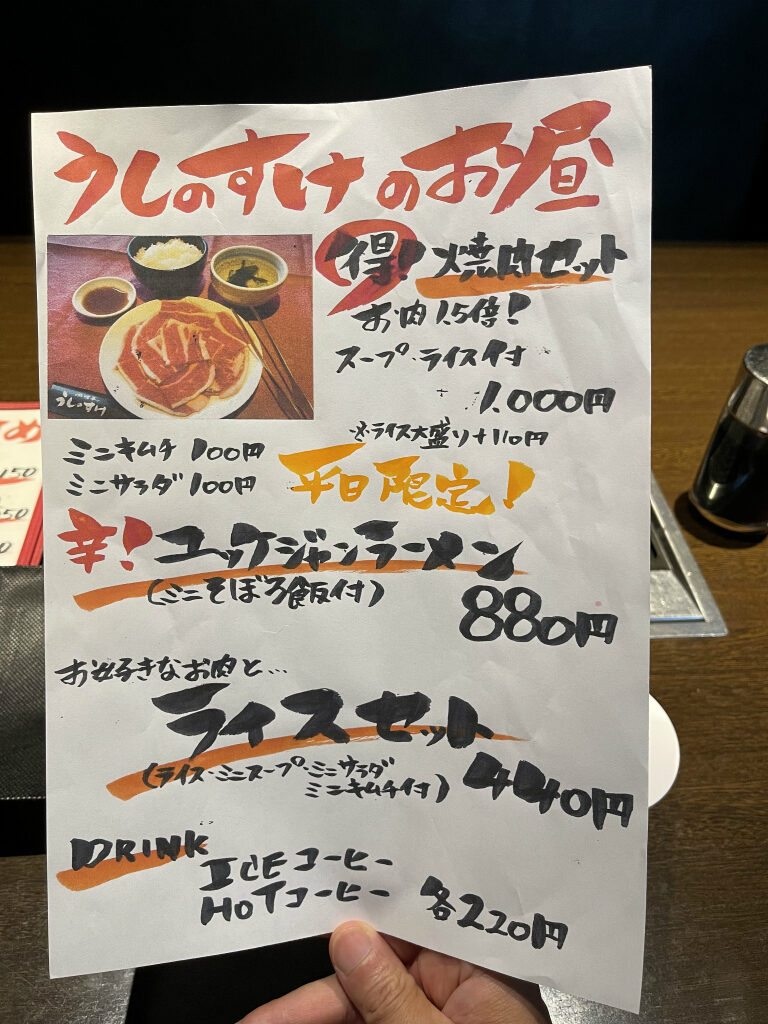 うしのすけのお昼
得! 焼肉セット
お肉1.5倍!
スープ・ライス付
1,000円
※ライス大盛り+110円
うしのすけ
ミニキムチ 100円
ミニサラダ 100円
平日限定!
辛! ユッケジャンラーメン
(ミニそぼろ飯付)
880円
お好きなお肉と...
ライスセット
(ライス・ミニスープ・ミニサラダ
ミニキムチ付)
440円
DRINK
ICEコーヒー
HOTコーヒー
各220円
め
150